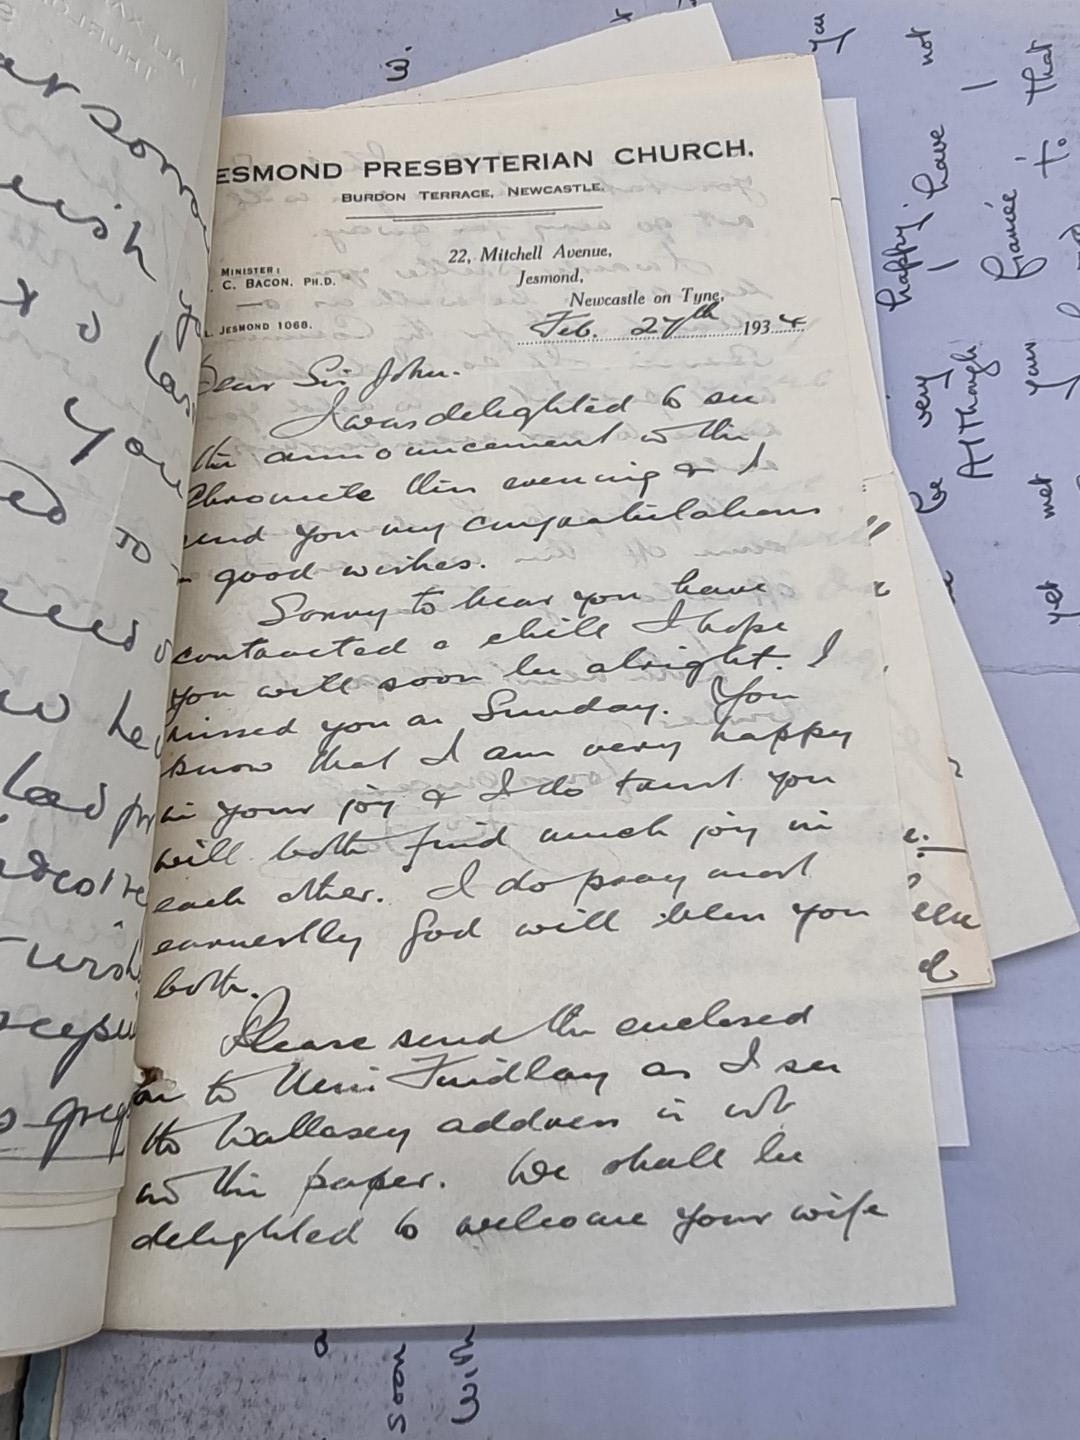 ESMOND PRESBYTERIAN CHURCH,
BURDON TERRACE, NEWCASTLE.
MINISTER:
C. BACON, PH.D.
JESMOND 1068.
22, Mitchell Avenue,
Jesmond,
Newcastle on Tyne,
Feb. 27th 1934
Dear Sir John.
I was delighted to see
the announcement in the
Chronicle this evening & I
send you my congratulations
& good wishes.
Sorry to hear you have
contracted a chill I hope
you will soon be alright. I
missed you on Sunday. You
know that I am very happy
in your joy & I do trust you
will both find much joy in
each other. I do pray most
earnestly God will bless you
both.
Please send the enclosed
on to Miss Findlay as I see
the Wallasey address is not
in the paper. We shall be
delighted to welcome your wife
wish
to
You
to
he
had
W.
you
not
happy! have
I
that
to
fiancée
very
be
Although
your
met
yet
soon
with